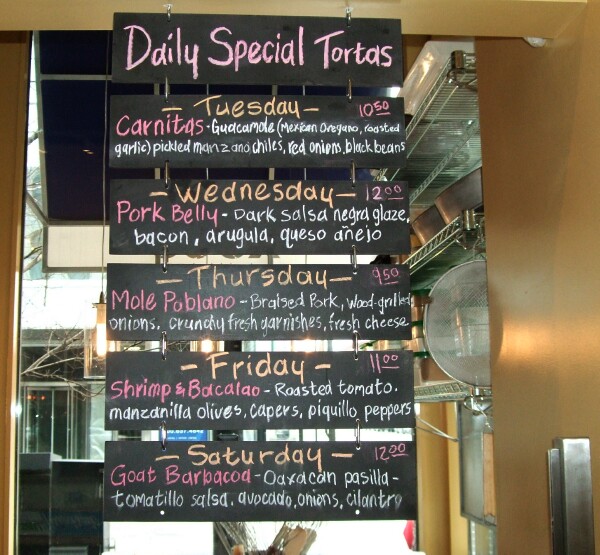 Daily Special Tortas
- Tuesday - 10.50
Carnitas - Guacamole (Mexican Oregano, roasted
garlic) pickled manzano chiles, red onions, black beans
- Wednesday - 12.00
Pork Belly - Dark salsa negra glaze,
bacon, arugula, queso añejo
- Thursday - 9.50
Mole Poblano - Braised Pork, wood-grilled
onions. crunchy fresh garnishes, fresh cheese
- Friday - 11.00
Shrimp & Bacalao - Roasted tomato.
manzanilla olives, capers, piquillo peppers
- Saturday - 12.00
Goat Barbacoa - Oaxacan pasilla-
tomatillo salsa. avocado, onions, cilantro